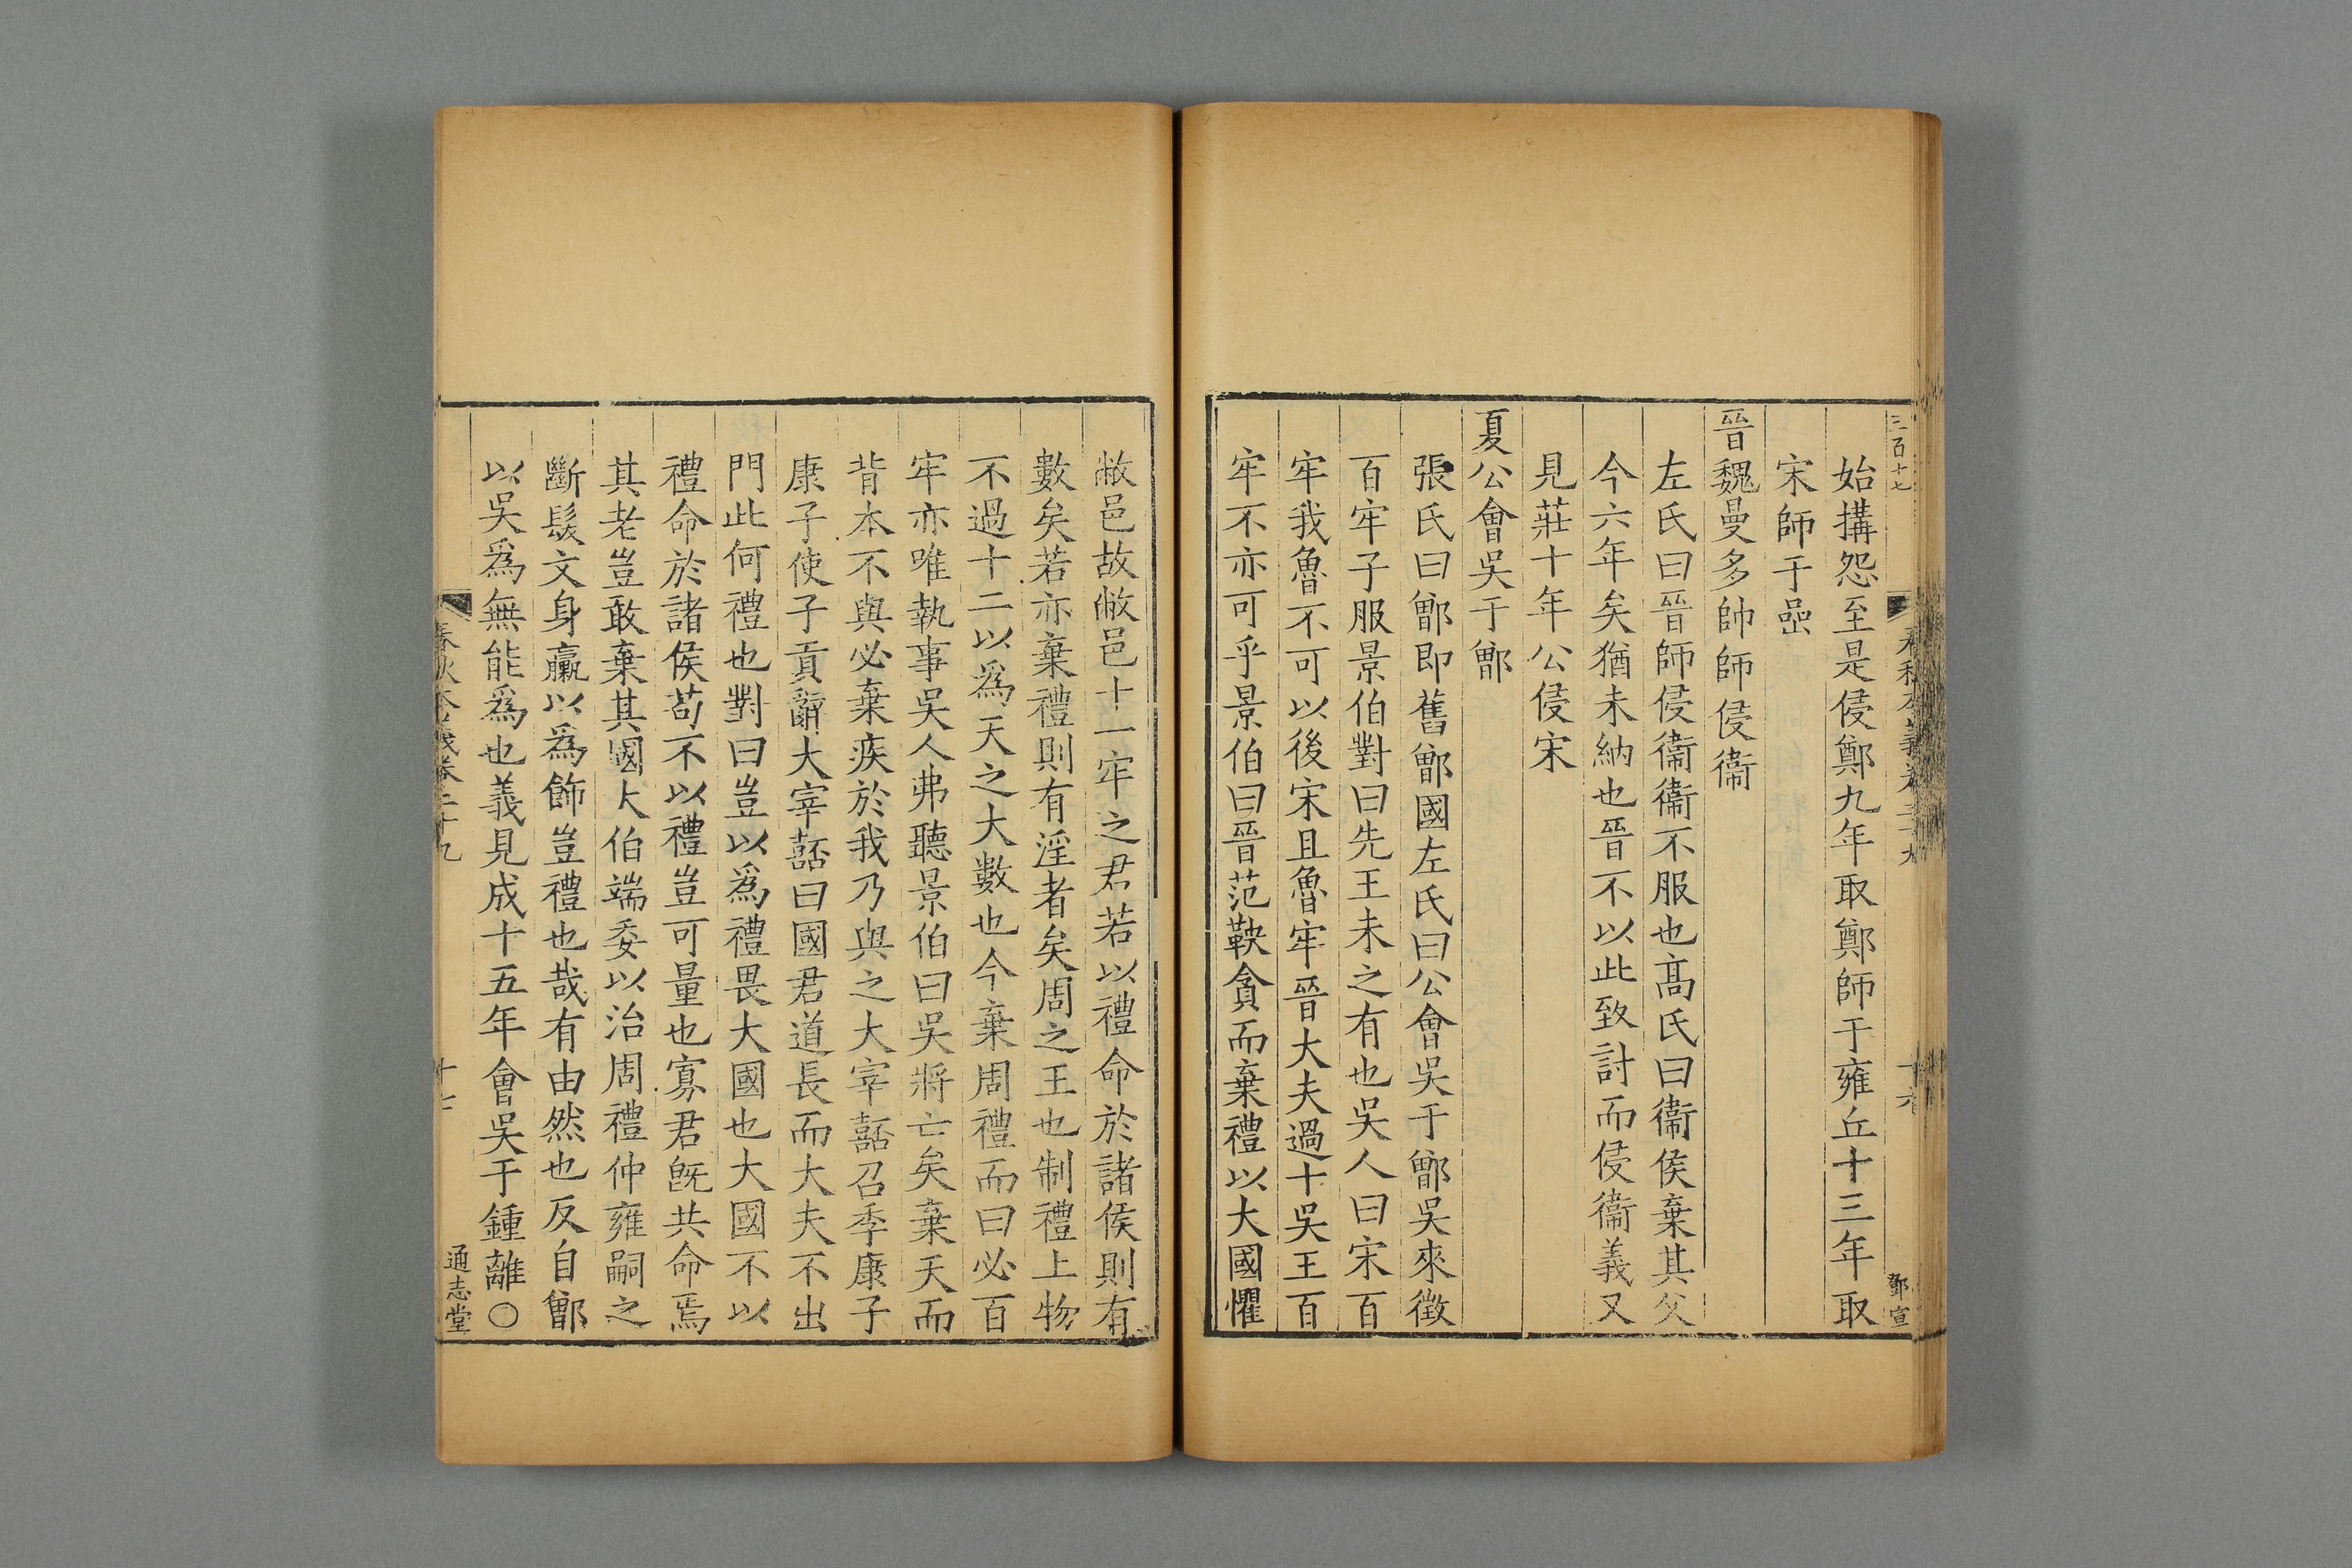 三百十七
春秋本義卷二十九
十六
鄧宣
始搆怨至是侵鄭九年取鄭師于雍丘十三年取
宋師于嵒
晉魏曼多帥師侵衞
左氏曰晉師侵衞衞不服也髙氏曰衞侯棄其父
今六年矣猶未納也晉不以此致討而侵衞義又
見莊十年公侵宋
夏公會吳于鄫
張氏曰鄫即舊鄫國左氏曰公會吳于鄫吳來徵
百牢子服景伯對曰先王未之有也吳人曰宋百
牢我魯不可以後宋且魯牢晉大夫過十吳王百
牢不亦可乎景伯曰晉范鞅貪而棄禮以大國懼
敝邑故敝邑十一牢之君若以禮命於諸侯則有
數矣若亦棄禮則有淫者矣周之王也制禮上物
不過十二以爲天之大數也今棄周禮而曰必百
牢亦唯執事吳人弗聽景伯曰吳將亡矣棄天而
背本不與必棄疾於我乃與之大宰嚭召季康子
康子使子貢辭大宰嚭曰國君道長而大夫不出
門此何禮也對曰豈以爲禮畏大國也大國不以
禮命於諸侯苟不以禮豈可量也寡君旣共命焉
其老豈敢棄其國大伯端委以治周禮仲雍嗣之
斷髮文身臝以爲飾豈禮也哉有由然也反自鄫
以吳爲無能爲也義見成十五年會吳于鍾離○
春秋本義卷二十九
十七
通志堂